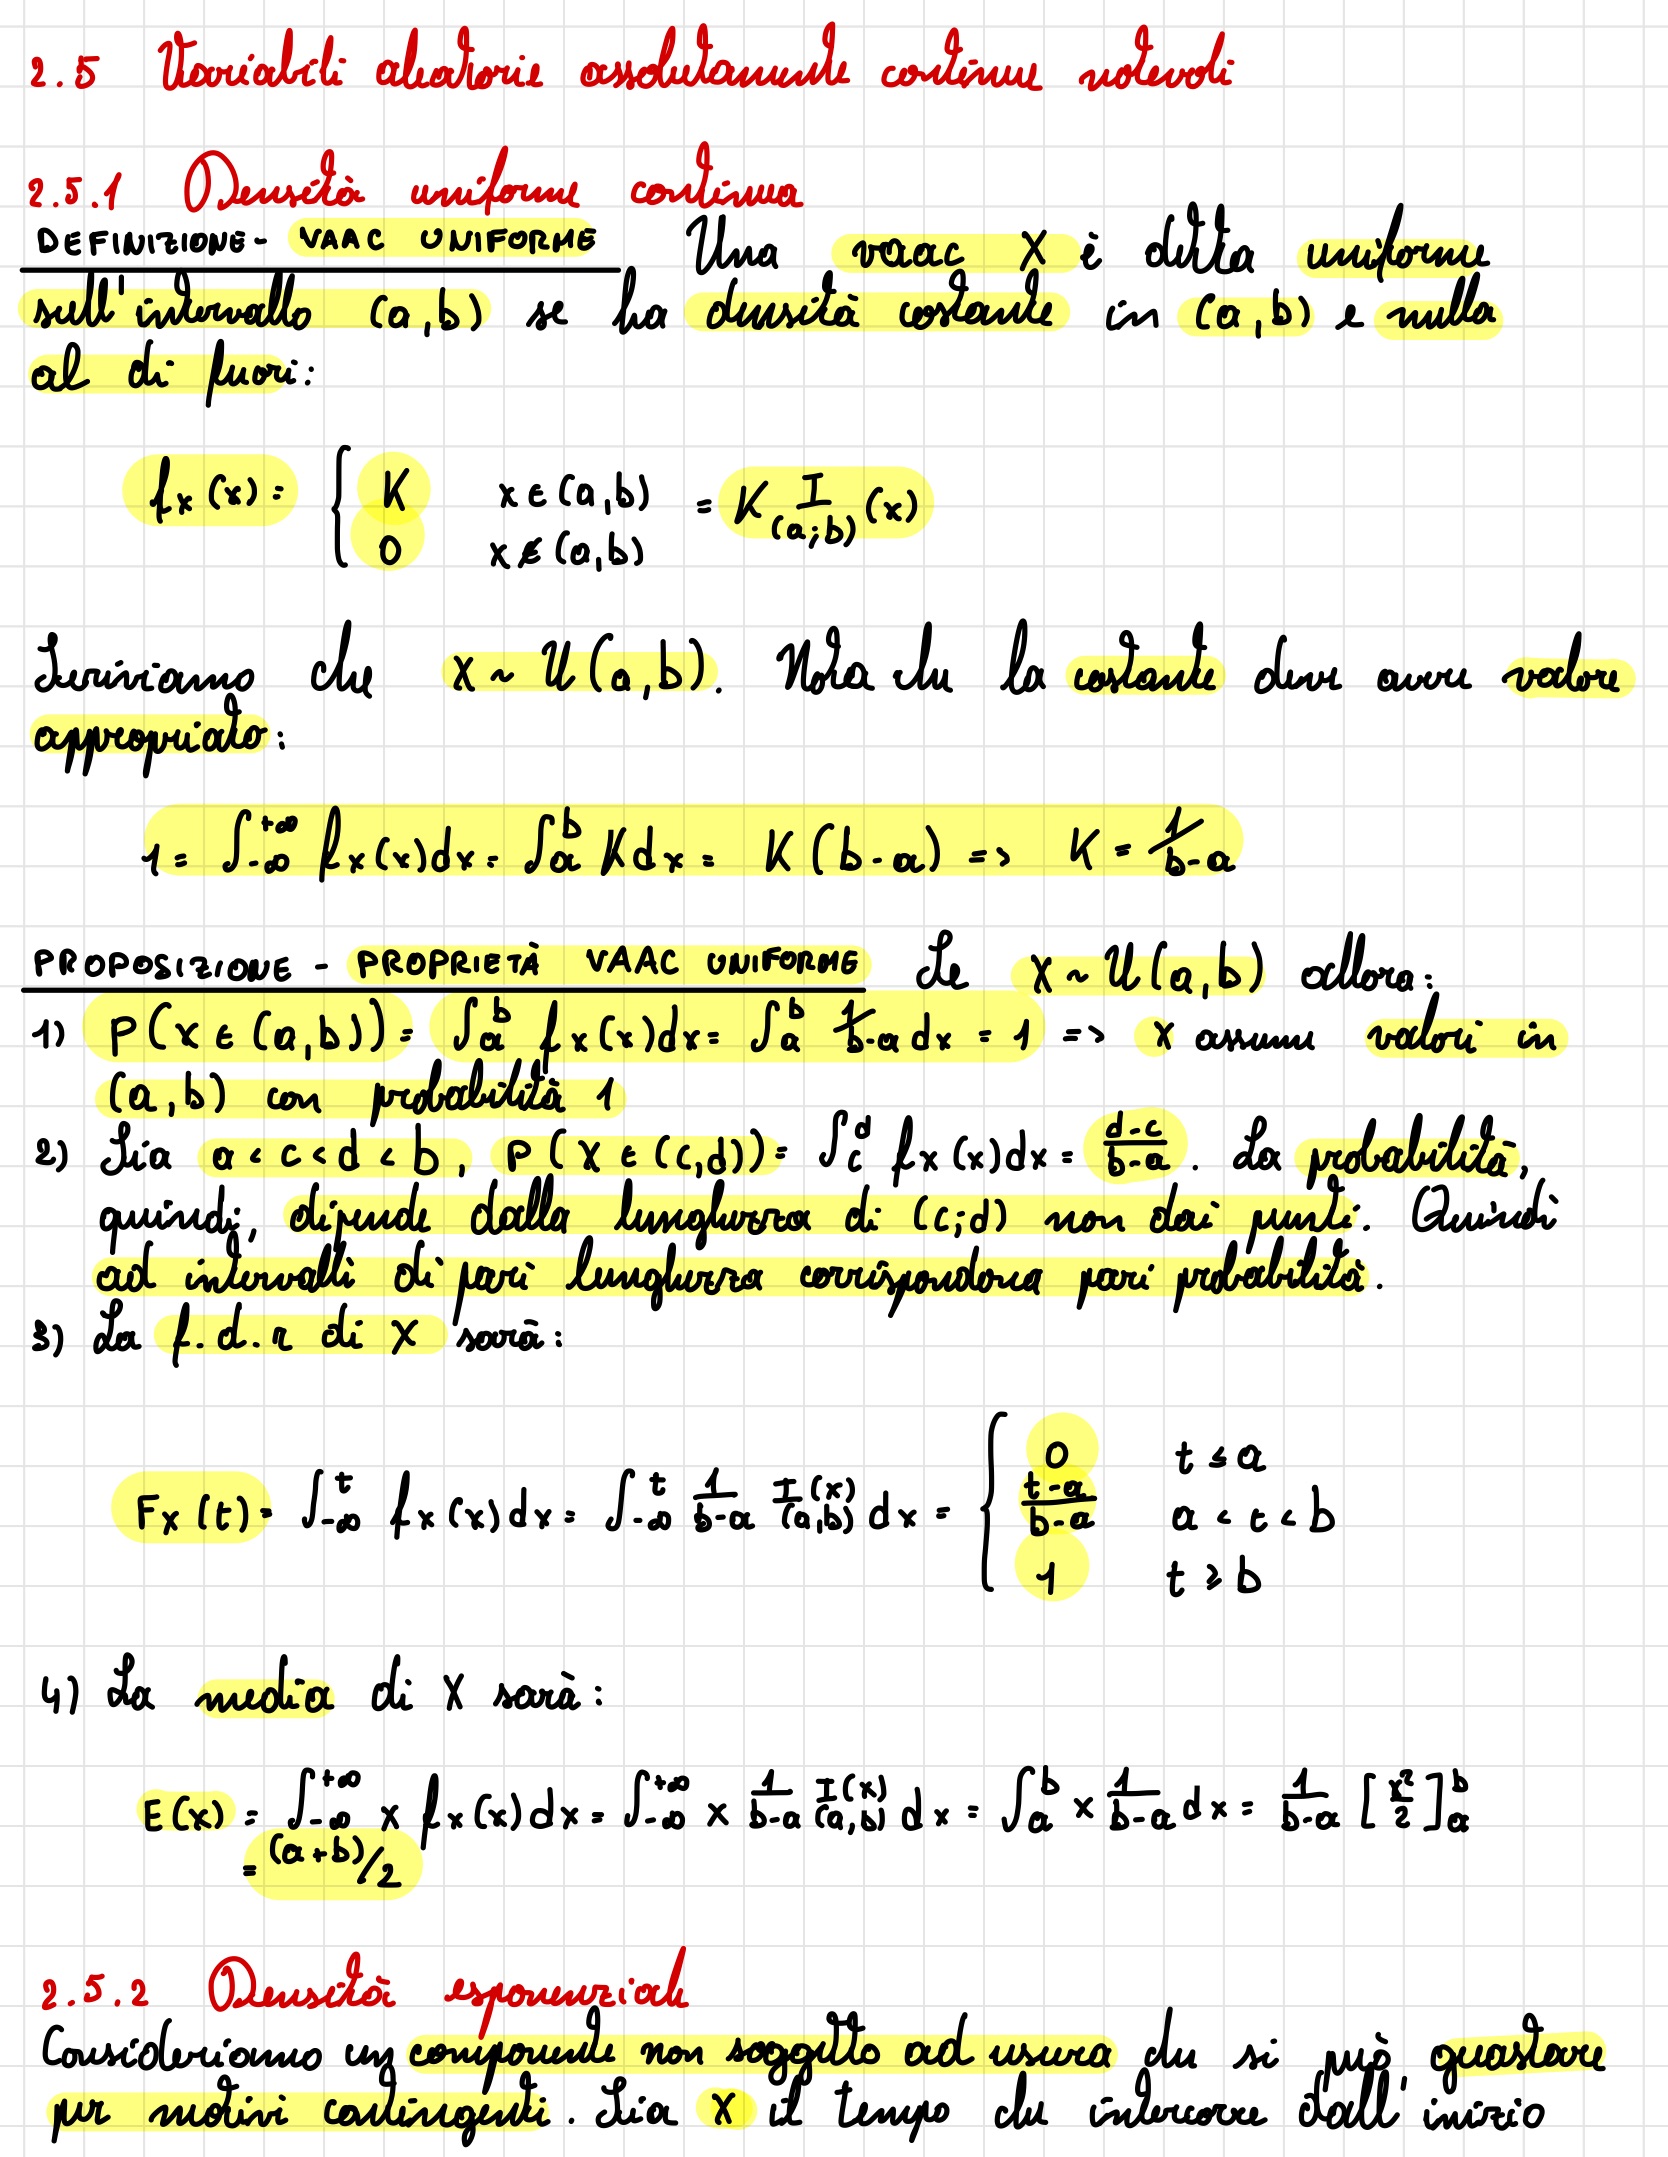 2.5 Variabili aleatorie assolutamente continue notevoli
2.5.1 Densità uniforme continua
DEFINIZIONE - VAAC UNIFORME Una vaac X è detta uniforme
sull'intervallo (a,b) se ha densità costante in (a,b) e nulla
al di fuori:
fx(x) = { K x ∈ (a,b) = K I(a;b) (x)
0 x ∉ (a,b)
Scriviamo che X ~ U(a,b). Nota che la costante deve avere valore
appropriato:
1 = ∫-∞^+∞ fx(x)dx = ∫a^b K dx = K(b-a) => K = 1/b-a
PROPOSIZIONE - PROPRIETÀ VAAC UNIFORME Se X ~ U(a,b) allora:
1) P(X ∈ (a,b)) = ∫a^b fx(x)dx = ∫a^b 1/b-a dx = 1 => X assume valori in
(a,b) con probabilità 1
2) Sia a < c < d < b, P(X ∈ (c,d)) = ∫c^d fx(x)dx = d-c/b-a. La probabilità,
quindi, dipende dalla lunghezza di (c;d) non dai punti. Quindi
ad intervalli di pari lunghezza corrispondona pari probabilità.
3) La f.d.r di X sarà:
Fx(t) = ∫-∞^t fx(x)dx = ∫-∞^t 1/b-a I(x)(a,b) dx = { 0 t ≤ a
t-a/b-a a < t < b
1 t ≥ b
4) La media di X sarà:
E(X) = ∫-∞^+∞ x fx(x)dx = ∫-∞^+∞ x 1/b-a I(x)(a,b) dx = ∫a^b x 1/b-a dx = 1/b-a [x²/2]a^b
= (a+b)/2
2.5.2 Densità esponenziale
Consideriamo un componente non soggetto ad usura che si può guastare
per motivi contingenti. Sia X il tempo che intercorre dall'inizio